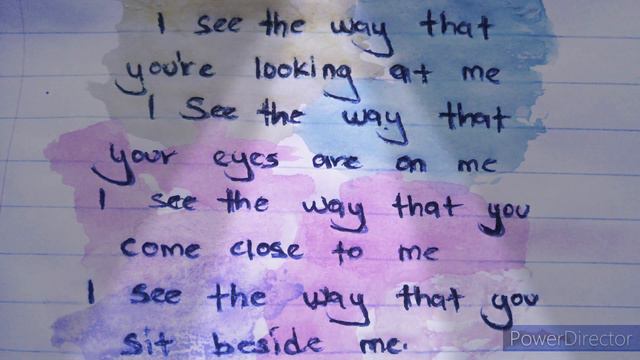 I see the way that
you're looking at me
I See the way that
your eyes are on me
I see the way that you
come close to me
I see the way that you
sit beside me.
PowerDirector